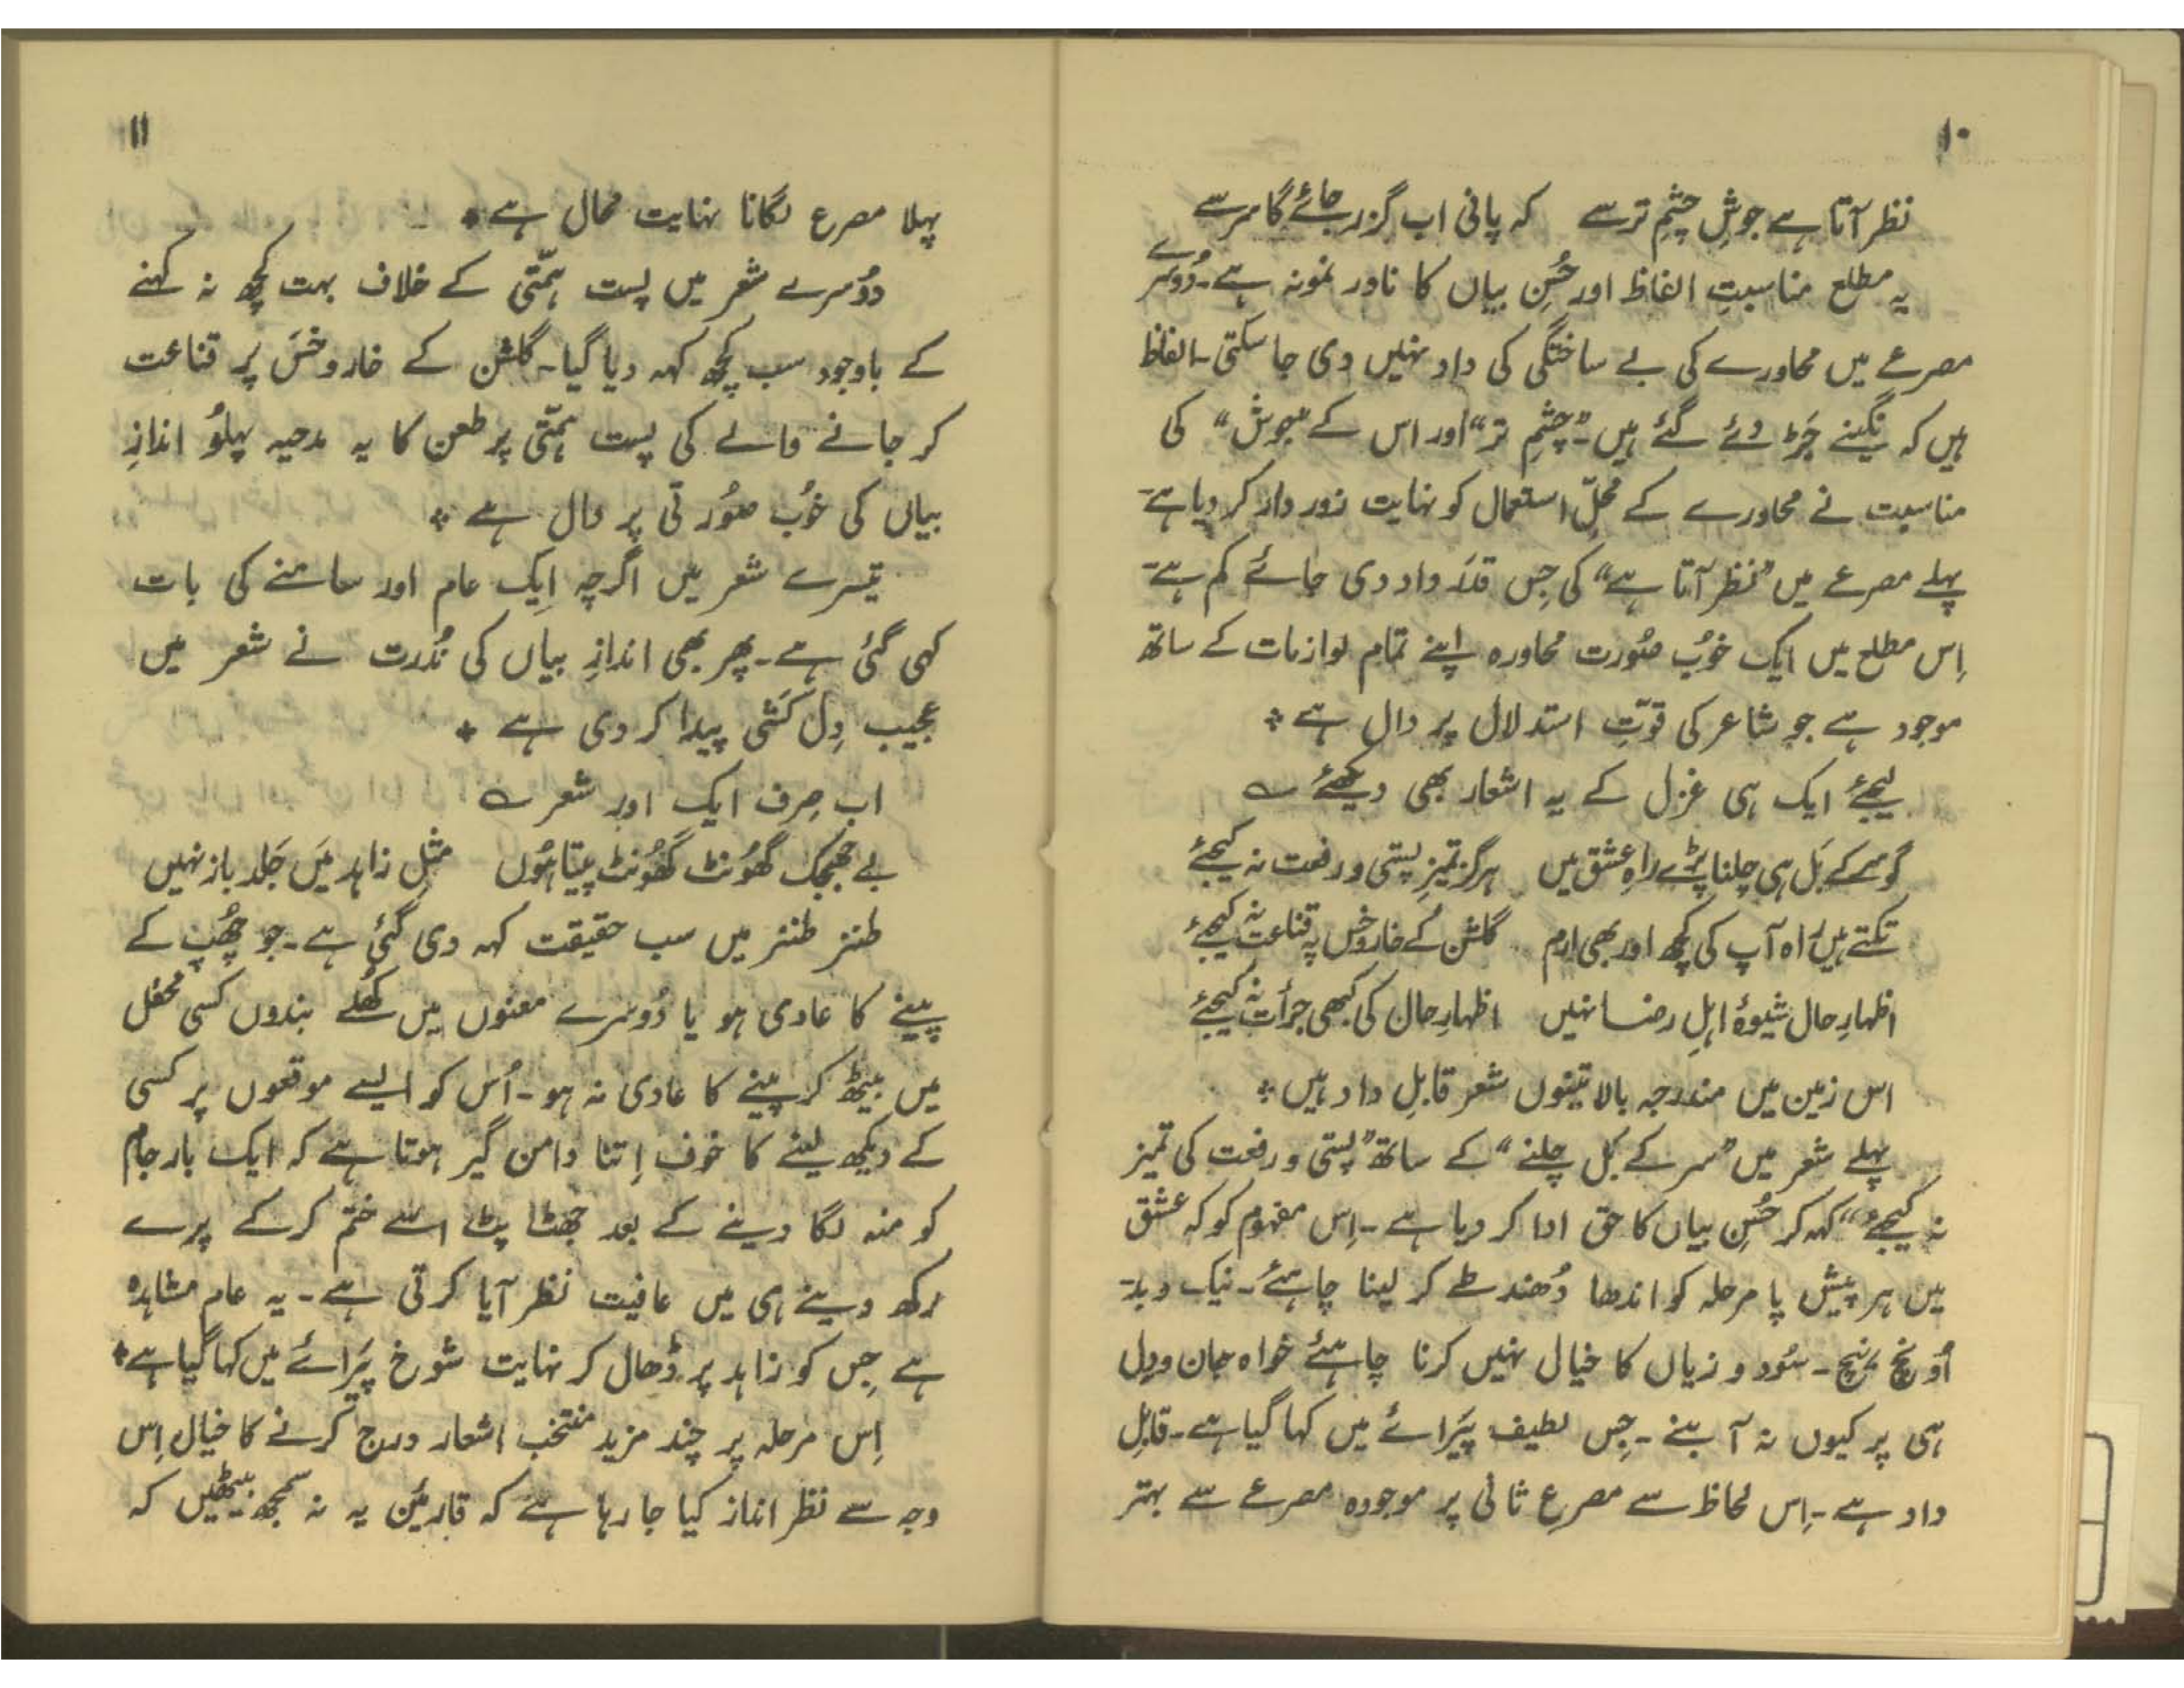 ۱۰
نظر آتا ہے جوشِ چشمِ تر سے    کہ پانی اب گزر جائے گا سر سے
یہ مطلع مناسبتِ الفاظ اور حُسنِ بیاں کا نادر نمونہ ہے۔ دُوسرے
مصرعے میں محاورے کی بے ساختگی کی داد نہیں دی جا سکتی۔ الفاظ
ہیں کہ نگینے جَڑ دئے گئے ہیں۔ "چشمِ تر" اور اس کے "جوش" کی
مناسبت نے محاورے کے محلِّ استعمال کو نہایت زور دار کر دیا ہے۔
پہلے مصرعے میں "نظر آتا ہے" کی جِس قدَر داد دی جائے کم ہے۔
اِس مطلع میں ایک خوُب صُورت محاورہ اپنے تمام لوازمات کے ساتھ
موجود ہے جو شاعر کی قوّتِ استدلال پر دال ہے *
لیجئے ایک ہی غزل کے یہ اشعار بھی دیکھئے ؎
گو سر کے بَل ہی چلنا پڑے راہِ عشق میں    ہرگز تمیزِ پستی و رفعت نہ کیجئے
تکتے ہیں راہ آپ کی کچھ اور بھی اِرم    گلشن کے خار و خس پہ قناعت نہ کیجئے
اظہارِ حال شیوۂ اہلِ رضا نہیں    اظہارِ حال کی کبھی جرأت نہ کیجئے
اس زمین میں مندرجہ بالا تینوں شعر قابلِ داد ہیں *
پہلے شعر میں "سر کے بَل چلنے" کے ساتھ "پستی و رفعت کی تمیز
نہ کیجئے" کہہ کر حُسنِ بیاں کا حق ادا کر دیا ہے۔ اِس مفہوم کو کہ عشق
میں ہر پیش پا مرحلہ کو اندھا دُھند طے کر لینا چاہئے۔ نیک و بد۔
اُونچ نِیچ۔ سُود و زیاں کا خیال نہیں کرنا چاہئے خواہ جان و دِل
ہی پر کیوں نہ آ بنے۔ جِس لطیف پَیرائے میں کہا گیا ہے۔ قابلِ
داد ہے۔ اِس لحاظ سے مصرعِ ثانی پر موجودہ مصرعے سے بہتر
۱۱
پہلا مصرع لگانا نہایت محال ہے *
دُوسرے شعر میں پست ہمّتی کے خلاف بہت کچھ نہ کہنے
کے باوجود سب کچھ کہہ دیا گیا۔ گلشن کے خار و خَس پر قناعت
کر جانے والے کی پست ہمّتی پر طعن کا یہ مدحیہ پہلوُ اندازِ
بیاں کی خوُب صُورتی پر دال ہے *
تیسرے شعر میں اگرچہ اِیک عام اور سامنے کی بات
کہی گئی ہے۔ پھر بھی اندازِ بیاں کی نُدرت نے شعر میں
عجیب دِل کَشی پیدا کر دی ہے *
اب صِرف ایک اور شعر ؎
بے جھجک گھُونٹ گھُونٹ پیتا ہُوں    مثلِ زاہد مَیں جَلد باز نہیں
طنز طنز میں سب حقیقت کہہ دی گئی ہے۔ جو چھُپ کے
پینے کا عادی ہو یا دُوسرے معنوں میں کھُلے بندوں کسی محفل
میں بیٹھ کر پینے کا عادی نہ ہو۔ اُس کو ایسے موقعوں پر کسی
کے دیکھ لینے کا خوف اِتنا دامن گیر ہوتا ہے کہ ایک بار جام
کو منہ لگا دینے کے بعد جھٹا پٹے اسے ختم کرکے پرے
رکھ دینے ہی میں عافیت نظر آیا کرتی ہے۔ یہ عام مشاہدہ
ہے جِس کو زاہد پر ڈھال کر نہایت شورخ پَیرائے میں کہا گیا ہے *
اِس مرحلہ پر چند مزید منتخب اشعار درج کرنے کا خیال اِس
وجہ سے نظر انداز کیا جا رہا ہے کہ قارئین یہ نہ سمجھ بیٹھیں کہ